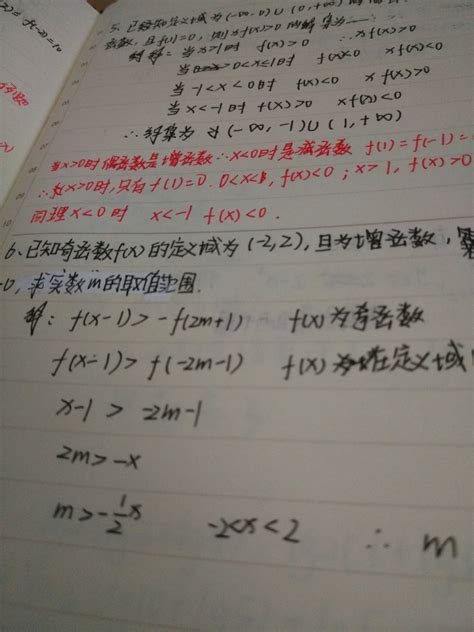 f(-2)=10
5. 已知定义域为(-∞,0)∪(0,+∞)的
函数,且f(1)=0,则xf(x)>0的解集为
解释:当x>1时 f(x)>0 ∴xf(x)>0
当 0<x≤1时 f(x)<0 xf(x)<0
当 -1<x<0时 f(x)<0 xf(x)>0
当 x<-1时 f(x)>0 xf(x)<0
∴解集为 (-∞,-1)∪(1,+∞)
当x>0时 偶函数是增函数∴x<0时是减函数 f(1)=f(-1)=
∴在x>0时,只有f(1)=0. 0<x<1, f(x)<0; x>1, f(x)>0
同理x<0时 x<-1 f(x)<0.
6、已知奇函数f(x)的定义域为(-2,2),且为增函数,
求实数m的取值范围.
解: f(x-1)>-f(2m+1) f(x)为奇函数
f(x-1)>f(-2m-1) f(x)在定义域
x-1>-2m-1
2m>-x
m>-1/2x -2<x<2 ∴ m